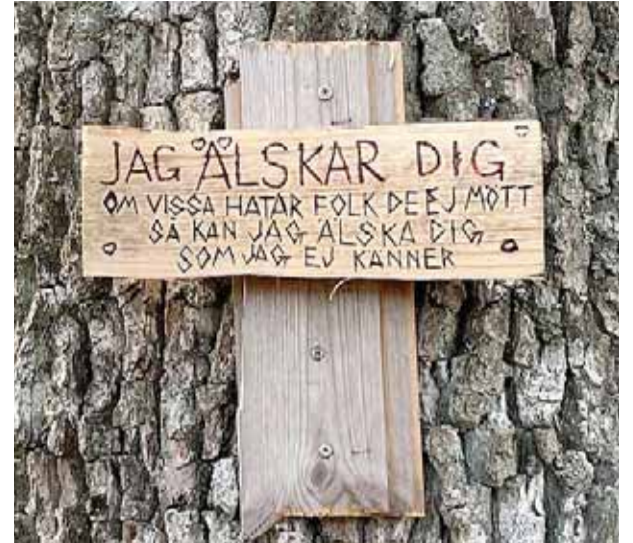 JAG ÄLSKAR DIG
OM VISSA HATAR FOLK DE EJ MÖTT
SÅ KAN JAG ÄLSKA DIG
SOM JAG EJ KÄNNER